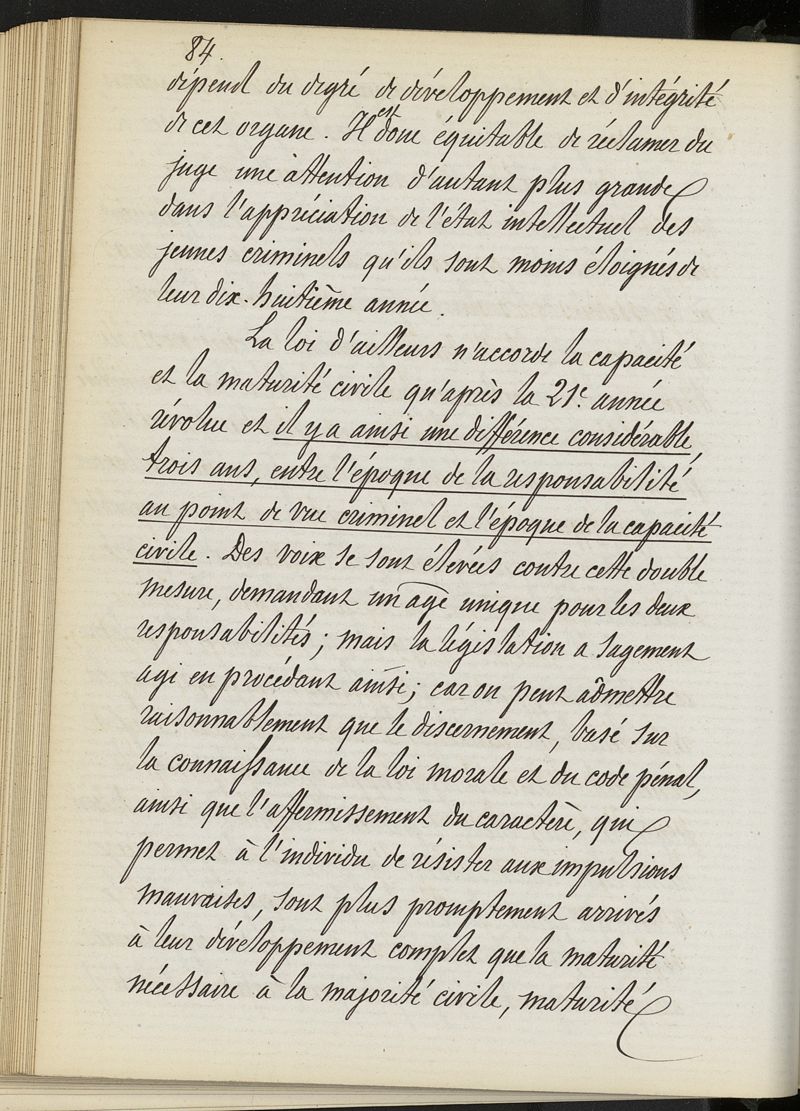 84.
dépend du degré de développement et d'intégrité
de cet organe. Il est donc équitable de réclamer du
juge une attention d'autant plus grande
dans l'appréciation de l'état intellectuel des
jeunes criminels qu'ils sont moins éloignés de
leur dix-huitième année.
La loi d'ailleurs n'accorde la capacité
et la maturité civile qu'après la 21e. année
révolue et il y a ainsi une différence considérable,
trois ans, entre l'époque de la responsabilité
au point de vue criminel et l'époque de la capacité
civile. Des voix se sont élevées contre cette double
mesure, demandant un âge unique pour les deux
responsabilités; mais la législation a sagement
agi en procédant ainsi; car on peut admettre
raisonnablement que le discernement, basé sur
la connaissance de la loi morale et du code pénal,
ainsi que l'affermissement du caractère, qui
permet à l'individu de résister aux impulsions
mauvaises, sont plus promptement arrivés
à leur développement complet que la maturité
nécessaire à la majorité civile, maturité